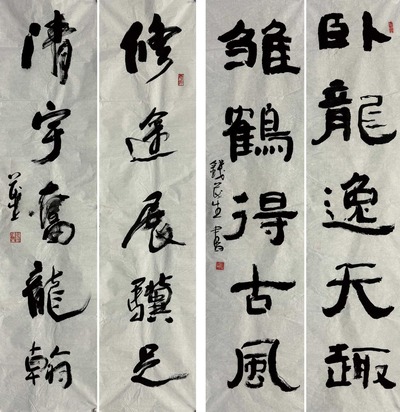 卧龍逸天趣
雛鶴得古風
錢茂生書
修途展驥足
清宇奮龍翰